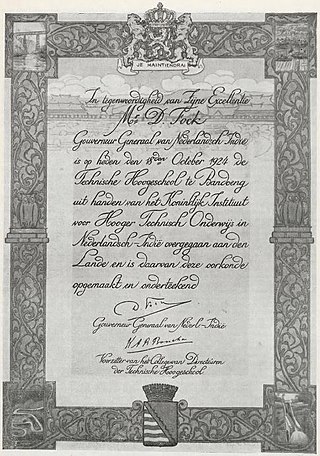 JE MAINTIENDRAI
In tegenwoordigheid van Zijne Excellentie
Mr D. Fock
Gouverneur Generaal van Nederlandsch Indië
is op heden den 18den October 1924 de
Technische Hoogeschool te Bandoeng
uit handen van het Koninklijk Instituut
voor Hooger Technisch Onderwijs in
Nederlandsch-Indië overgegaan aan den
Lande en is daarvan deze oorkonde
opgemaakt en onderteekend
D Fock
Gouverneur Generaal van Nederl-Indië
K A R Bosscha
Voorzitter van het College van Directeuren
der Technische Hoogeschool